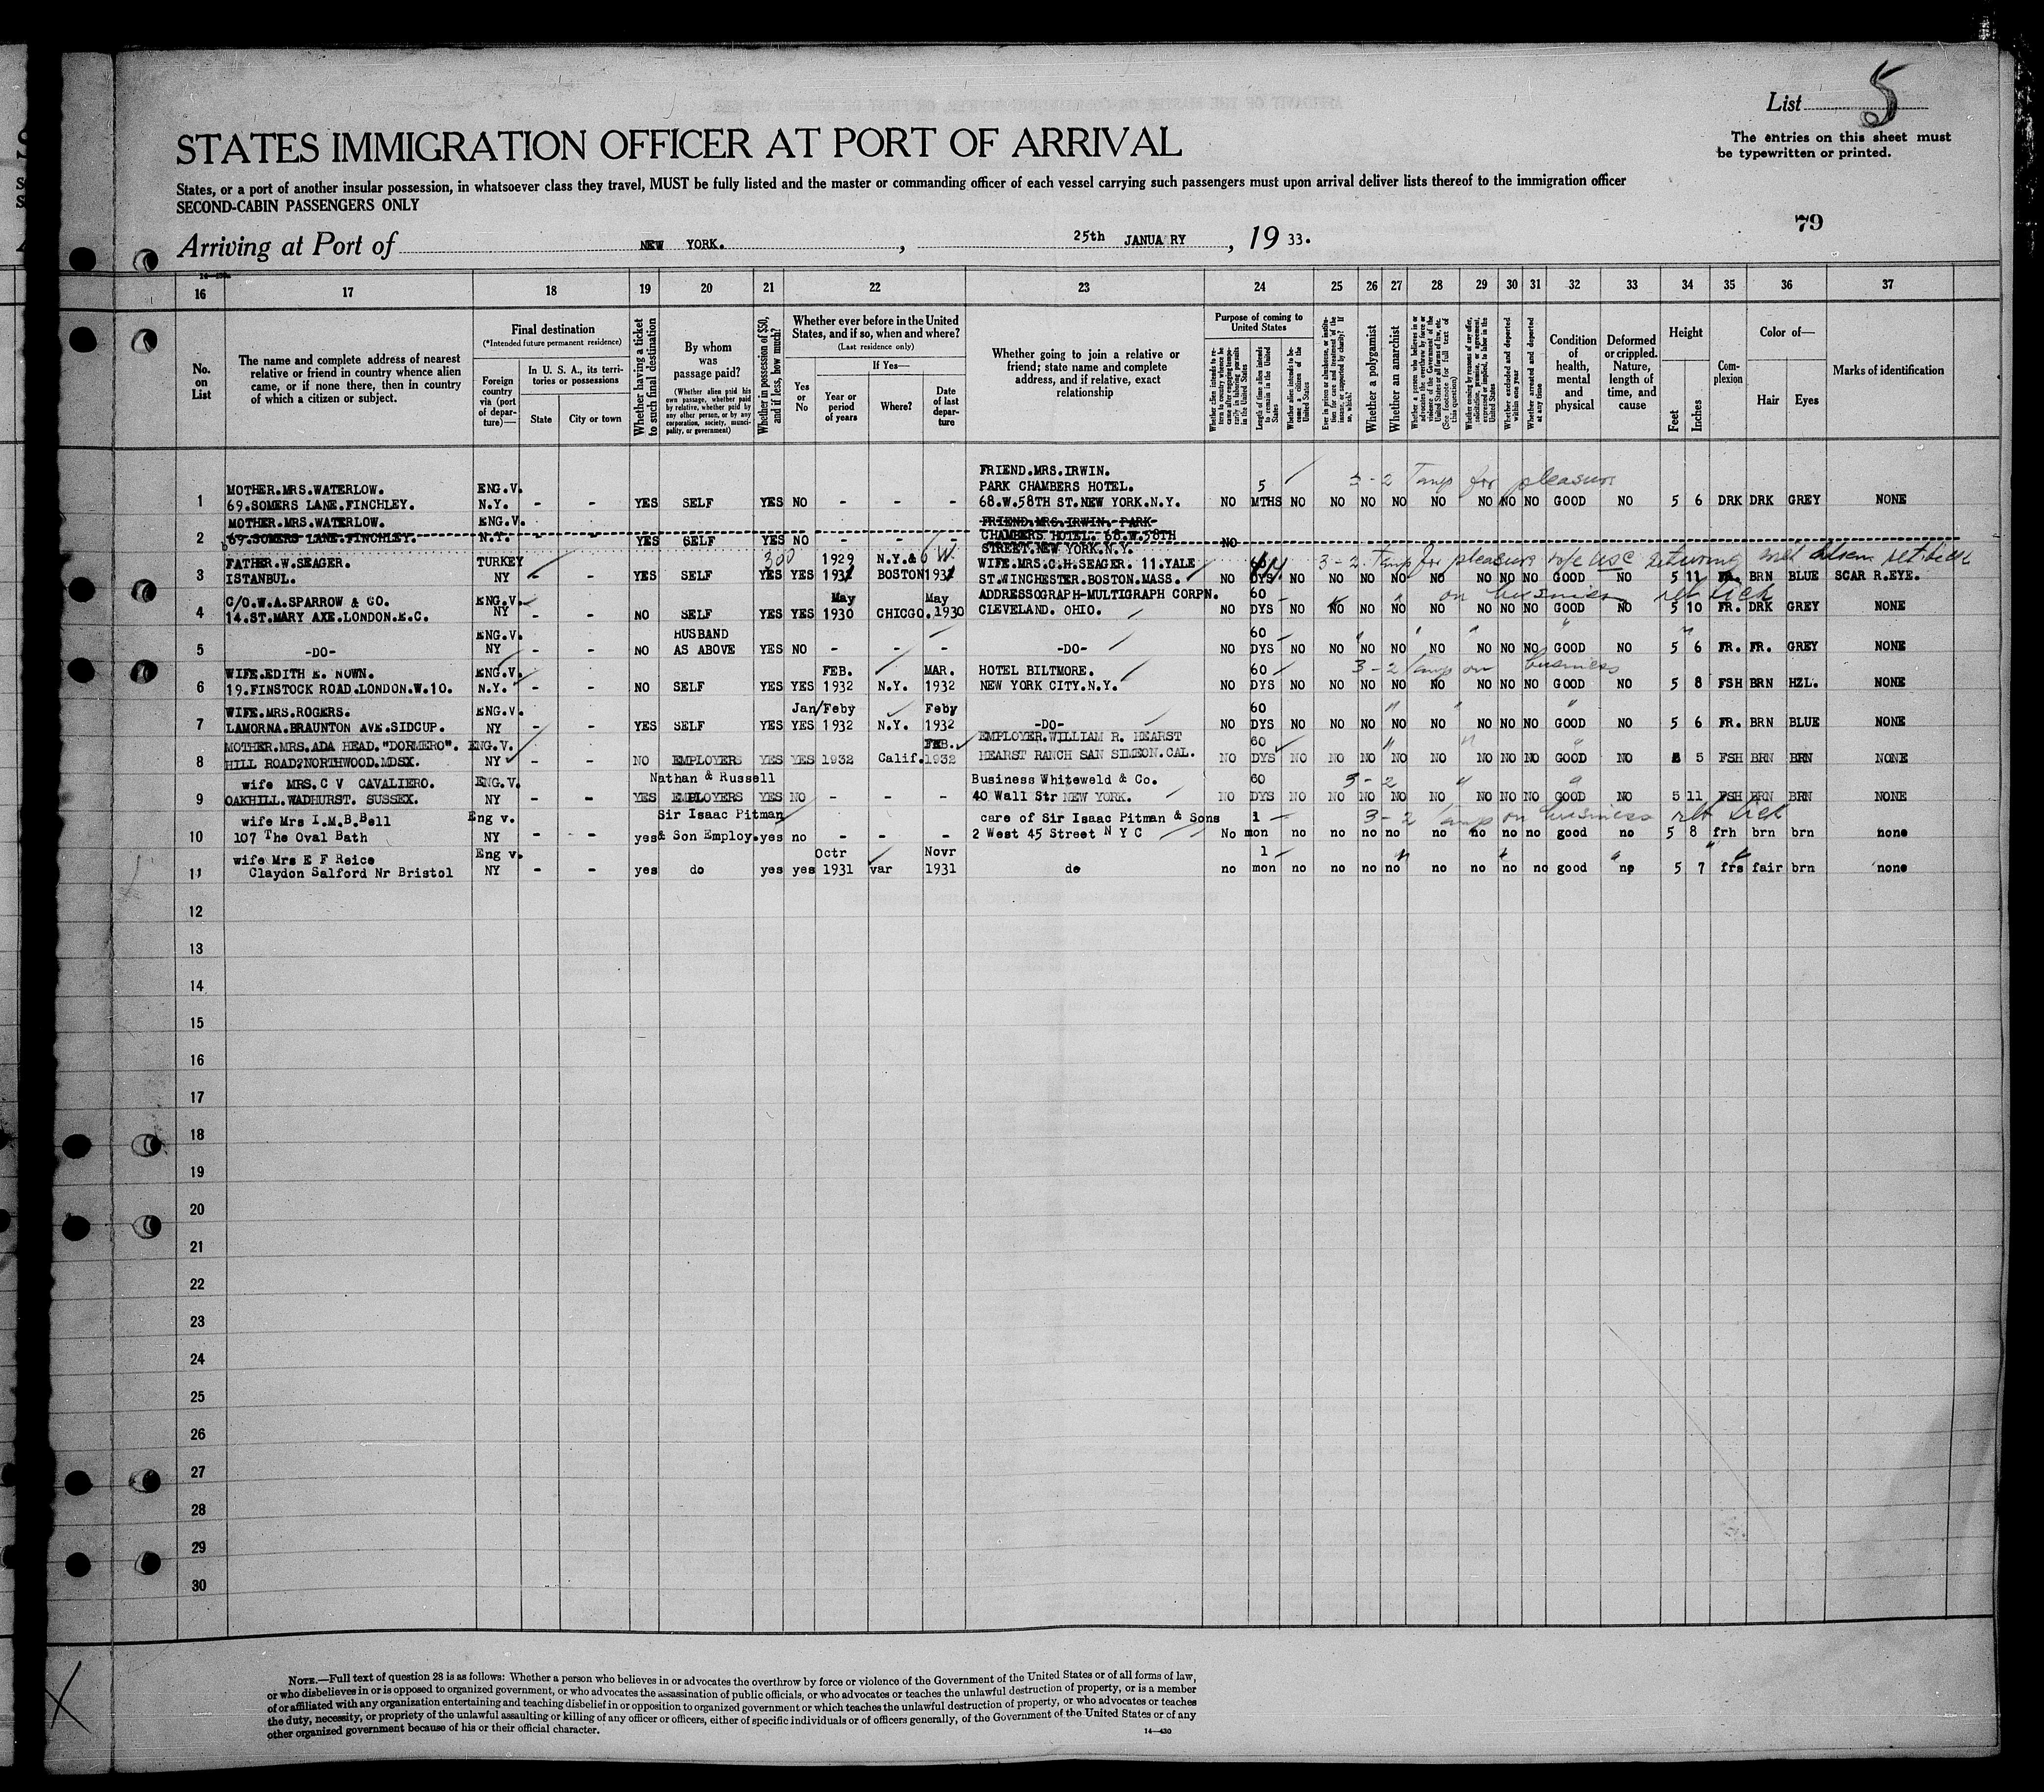 List 5
The entries on this sheet must
be typewritten or printed.
STATES IMMIGRATION OFFICER AT PORT OF ARRIVAL
States, or a port of another insular possession, in whatsoever class they travel, MUST be fully listed and the master or commanding officer of each vessel carrying such passengers must upon arrival deliver lists thereof to the immigration officer
SECOND-CABIN PASSENGERS ONLY
79
Arriving at Port of NEW YORK. , 25th JANUARY , 19 33.
16 17 18 19 20 21 22 23 24 25 26 27 28 29 30 31 32 33 34 35 36 37
No. on List
The name and complete address of nearest
relative or friend in country whence alien
came, or if none there, then in country
of which a citizen or subject.
Final destination
(*Intended future permanent residence)
Foreign country via (port of departure)—
In U. S. A., its territories or possessions
State
City or town
Whether having a ticket to such final destination
By whom was passage paid?
(Whether alien paid his own passage, whether paid by relative, whether paid by any other person, or by any corporation, society, municipality, or government)
Whether in possession of $50, and if less, how much?
Whether ever before in the United
States, and if so, when and where?
(Last residence only)
Yes or No
If Yes—
Year or period of years
Where?
Date of last departure
Whether going to join a relative or
friend; state name and complete
address, and if relative, exact
relationship
Purpose of coming to United States
Length of time alien intends to remain in the United States
Whether alien intends to become a citizen of the United States
Whether a polygamist
Whether an anarchist
Whether excluded and deported within one year
Whether arrested and deported at any time
Condition of health, mental and physical
Deformed or crippled. Nature, length of time, and cause
Height
Feet
Inches
Complexion
Color of—
Hair
Eyes
Marks of identification
FRIEND.MRS.IRWIN.
MOTHER.MRS.WATERLOW. ENG.V. PARK CHAMBERS HOTEL. 5 3-2 Temp for pleasure
1 69.SOMERS LANE.FINCHLEY. N.Y. - - YES SELF YES NO - - - 68.W.58TH ST.NEW YORK.N.Y. NO MTHS NO NO NO NO NO NO NO NO GOOD NO 5 6 DRK DRK GREY NONE
MOTHER.MRS.WATERLOW. ENG.V. FRIEND.MRS.IRWIN. PARK
2 69.SOMERS LANE.FINCHLEY. N.Y. - - YES SELF YES NO - - - CHAMBERS HOTEL. 68.W.58TH NO
STREET.NEW YORK.N.Y.
FATHER.W.SEAGER. TURKEY 300 1929 N.Y.& WIFE.MRS.C.H.SEAGER. 11.YALE 3-2 Temp for pleasure
3 ISTANBUL. NY - - YES SELF YES YES 1931 BOSTON 1931 ST.WINCHESTER.BOSTON.MASS. NO DYS NO NO NO NO NO NO NO NO GOOD NO 5 11 BRN BLUE SCAR R.EYE.
C/O.W.A.SPARROW & CO. ENG.V. May May ADDRESSOGRAPH-MULTIGRAPH CORPN. 60 on business ret tick
4 14.ST.MARY AXE.LONDON.E.C. NY - - NO SELF YES YES 1930 CHICGO. 1930 CLEVELAND. OHIO. NO DYS NO NO NO NO NO NO NO NO GOOD NO 5 10 FR. DRK GREY NONE
ENG.V. HUSBAND 60
5 -DO- NY - - NO AS ABOVE YES NO - - - -DO- NO DYS NO NO NO NO NO NO NO NO GOOD NO 5 6 FR. FR. GREY NONE
WIFE.EDITH E. NOWN. ENG.V. FEB. MAR. HOTEL BILTMORE. 60 3-2 Temp on business
6 19.FINSTOCK ROAD.LONDON.W.10. N.Y. - - NO SELF YES YES 1932 N.Y. 1932 NEW YORK CITY.N.Y. NO DYS NO NO NO NO NO NO NO NO GOOD NO 5 8 FSH BRN HZL. NONE
WIFE.MRS.ROGERS. ENG.V. Jan/Feby Feby 60
7 LAMORNA.BRAUNTON AVE.SIDCUP. NY - - YES SELF YES YES 1932 N.Y. 1932 -DO- NO DYS NO NO NO NO NO NO NO NO GOOD NO 5 6 FR. BRN BLUE NONE
MOTHER.MRS.ADA HEAD."DORMERO". ENG.V. FEB. EMPLOYER.WILLIAM R. HEARST 60
8 HILL ROAD,NORTHWOOD.MDSX. NY - - NO EMPLOYERS YES YES 1932 Calif. 1932 HEARST RANCH SAN SIMEON.CAL. NO DYS NO NO NO NO NO NO NO NO GOOD NO 5 5 FSH BRN BRN NONE
wife MRS.C V CAVALIERO. ENG.V. Nathan & Russell Business Whiteweld & Co. 60 3-2
9 OAKHILL.WADHURST. SUSSEX. NY - - YES EMPLOYERS YES NO - - - 40 Wall Str NEW YORK. NO DYS NO NO NO NO NO NO NO NO GOOD NO 5 11 FSH BRN BRN NONE
wife Mrs I.M.B.Bell Eng v. Sir Isaac Pitman care of Sir Isaac Pitman & Sons 1 3-2 Temp on business ret tick
10 107 The Oval Bath NY - - yes & Son Employ. yes no - - - 2 West 45 Street N Y C No mon no no no no no no no no good no 5 8 frh brn brn none
wife Mrs E F Reice Eng v. Octr Novr 1
11 Claydon Salford Nr Bristol NY - - yes do yes yes 1931 var 1931 do no mon no no no no no no no no good no 5 7 frs fair brn none
12
13
14
15
16
17
18
19
20
21
22
23
24
25
26
27
28
29
30
NOTE.—Full text of question 28 is as follows: Whether a person who believes in or advocates the overthrow by force or violence of the Government of the United States or of all forms of law,
or who disbelieves in or is opposed to organized government, or who advocates the assassination of public officials, or who advocates or teaches the unlawful destruction of property, or is a member
of or affiliated with any organization entertaining and teaching disbelief in or opposition to organized government or which teaches the unlawful destruction of property, or who advocates or teaches
the duty, necessity, or propriety of the unlawful assaulting or killing of any officer or officers, either of specific individuals or of officers generally, of the Government of the United States or of any
other organized government because of his or their official character.
14—430